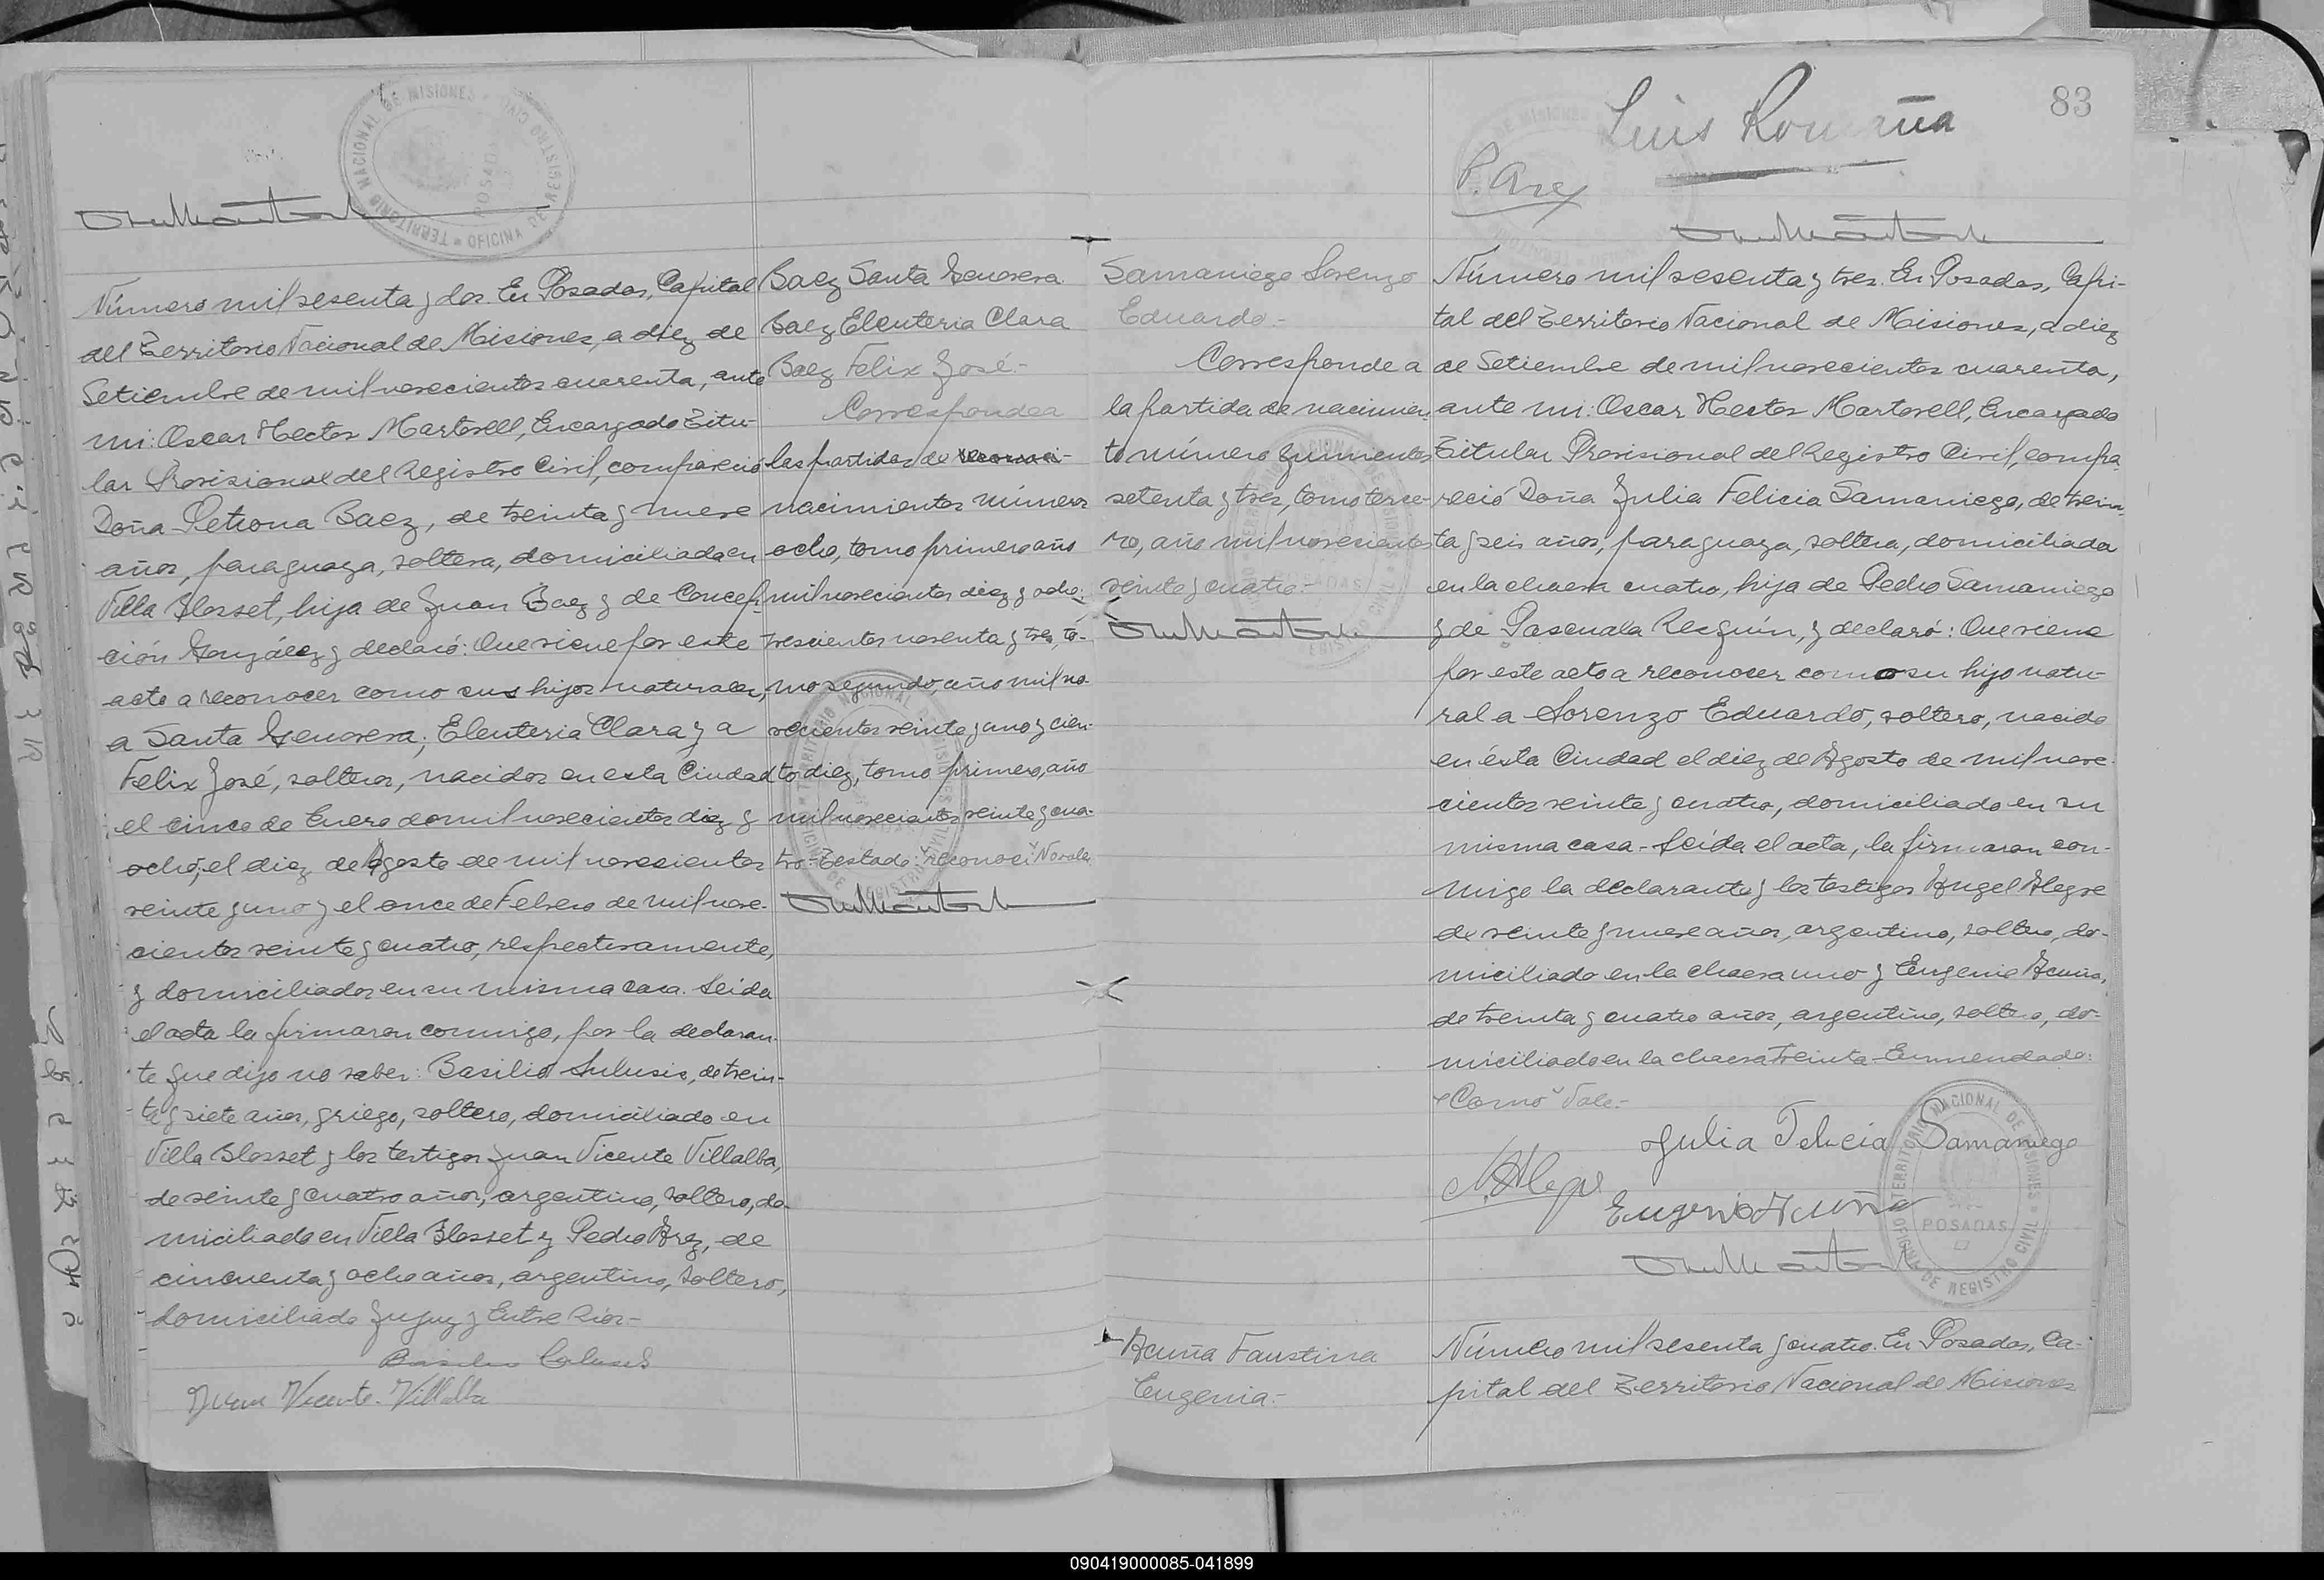 Número mil sesenta y dos. En Posadas, Capital
del Territorio Nacional de Misiones, a diez de
Setiembre de mil novecientos cuarenta, ante
mi: Oscar Hector Martorell, Encargado Titu-
lar Provisional del Registro Civil, compareció
Doña Petrona Baez, de treinta y nueve
años, paraguaya, soltera, domiciliada en
Villa Blosset, hija de Juan Baez y de Concep-
ción González y declaró: Que viene por este
acto a reconocer como sus hijos naturales,
a Santa Genovera; Eleuteria Clara y a
Felix José, solteros, nacidos en esta Ciudad
el cinco de Enero de mil novecientos diez y
ocho; el diez de Agosto de mil novecientos
veinte y uno y el once de Febrero de mil nove-
cientos veinte y cuatro, respectivamente,
y domiciliados en su misma casa. Leida
el acta la firmaron conmigo, por la declaran-
te que dijo no saber: Basilio, de trein-
ta y siete años, griego, soltero, domiciliado en
Villa Blosset y los testigos Juan Vicente Villalba,
de veinte y cuatro años, argentino, soltero, do-
miciliado en Villa Blosset y Pedro Arez, de
cincuenta y ocho años, argentino, soltero,
domiciliado Jujuy y Entre Rios-
Juan Vicente Villalba
Baez Santa Genovera
Baez Eleuteria Clara
Baez Felix José.-
Corresponde a
las partidas de reconoci-
nacimientos números
ocho, tomo primero año
mil novecientos diez y ocho;
trescientos noventa y tres, to-
mo segundo, año mil no-
vecientos veinte y uno y cien-
to diez, tomo primero, año
mil novecientos veinte y cua-
tro.-Testado: "reconoci" No vale.
Samaniego Lorenzo
Eduardo.-
Corresponde a
la partida de nacimien-
to número quinientos
setenta y tres, tomo terce-
ro, año mil novecientos
veinte y cuatro.-
Acuña Faustina
Eugenia.-
83
Luis Romaña
P. Arez
Número mil sesenta y tres. En Posadas, Capi-
tal del Territorio Nacional de Misiones, a diez
de Setiembre de mil novecientos cuarenta,
ante mi: Oscar Hector Martorell, Encargado
Titular Provisional del Registro Civil, compa-
reció Doña Julia Felicia Samaniego, de trein-
ta y seis años, paraguaya, soltera, domiciliada
en la chacra cuatro, hija de Pedro Samaniego
y de Pascuala Recquin, y declaró: Que viene
por este acto a reconocer como su hijo natu-
ral a Lorenzo Eduardo, soltero, nacido
en ésta Ciudad el diez de Agosto de mil nove-
cientos veinte y cuatro, domiciliado en su
misma casa.- Leída el acta, la firmaron con-
migo la declarante y los testigos Angel Alegre
de veinte y nueve años, argentino, soltero, do-
miciliado en la chacra uno y Eugenio Acuña,
de treinta y cuatro años, argentino, soltero, do-
miciliado en la chacra treinta- Enmendado:
"Como" Vale.-
Julia Felicia Samaniego
A Alegre
Eugenio Acuña
TERRITORIO NACIONAL DE MISIONES
POSADAS
OFICINA DE REGISTRO CIVIL
Número mil sesenta y cuatro. En Posadas, Ca-
pital del Territorio Nacional de Misiones
090419000085-041899